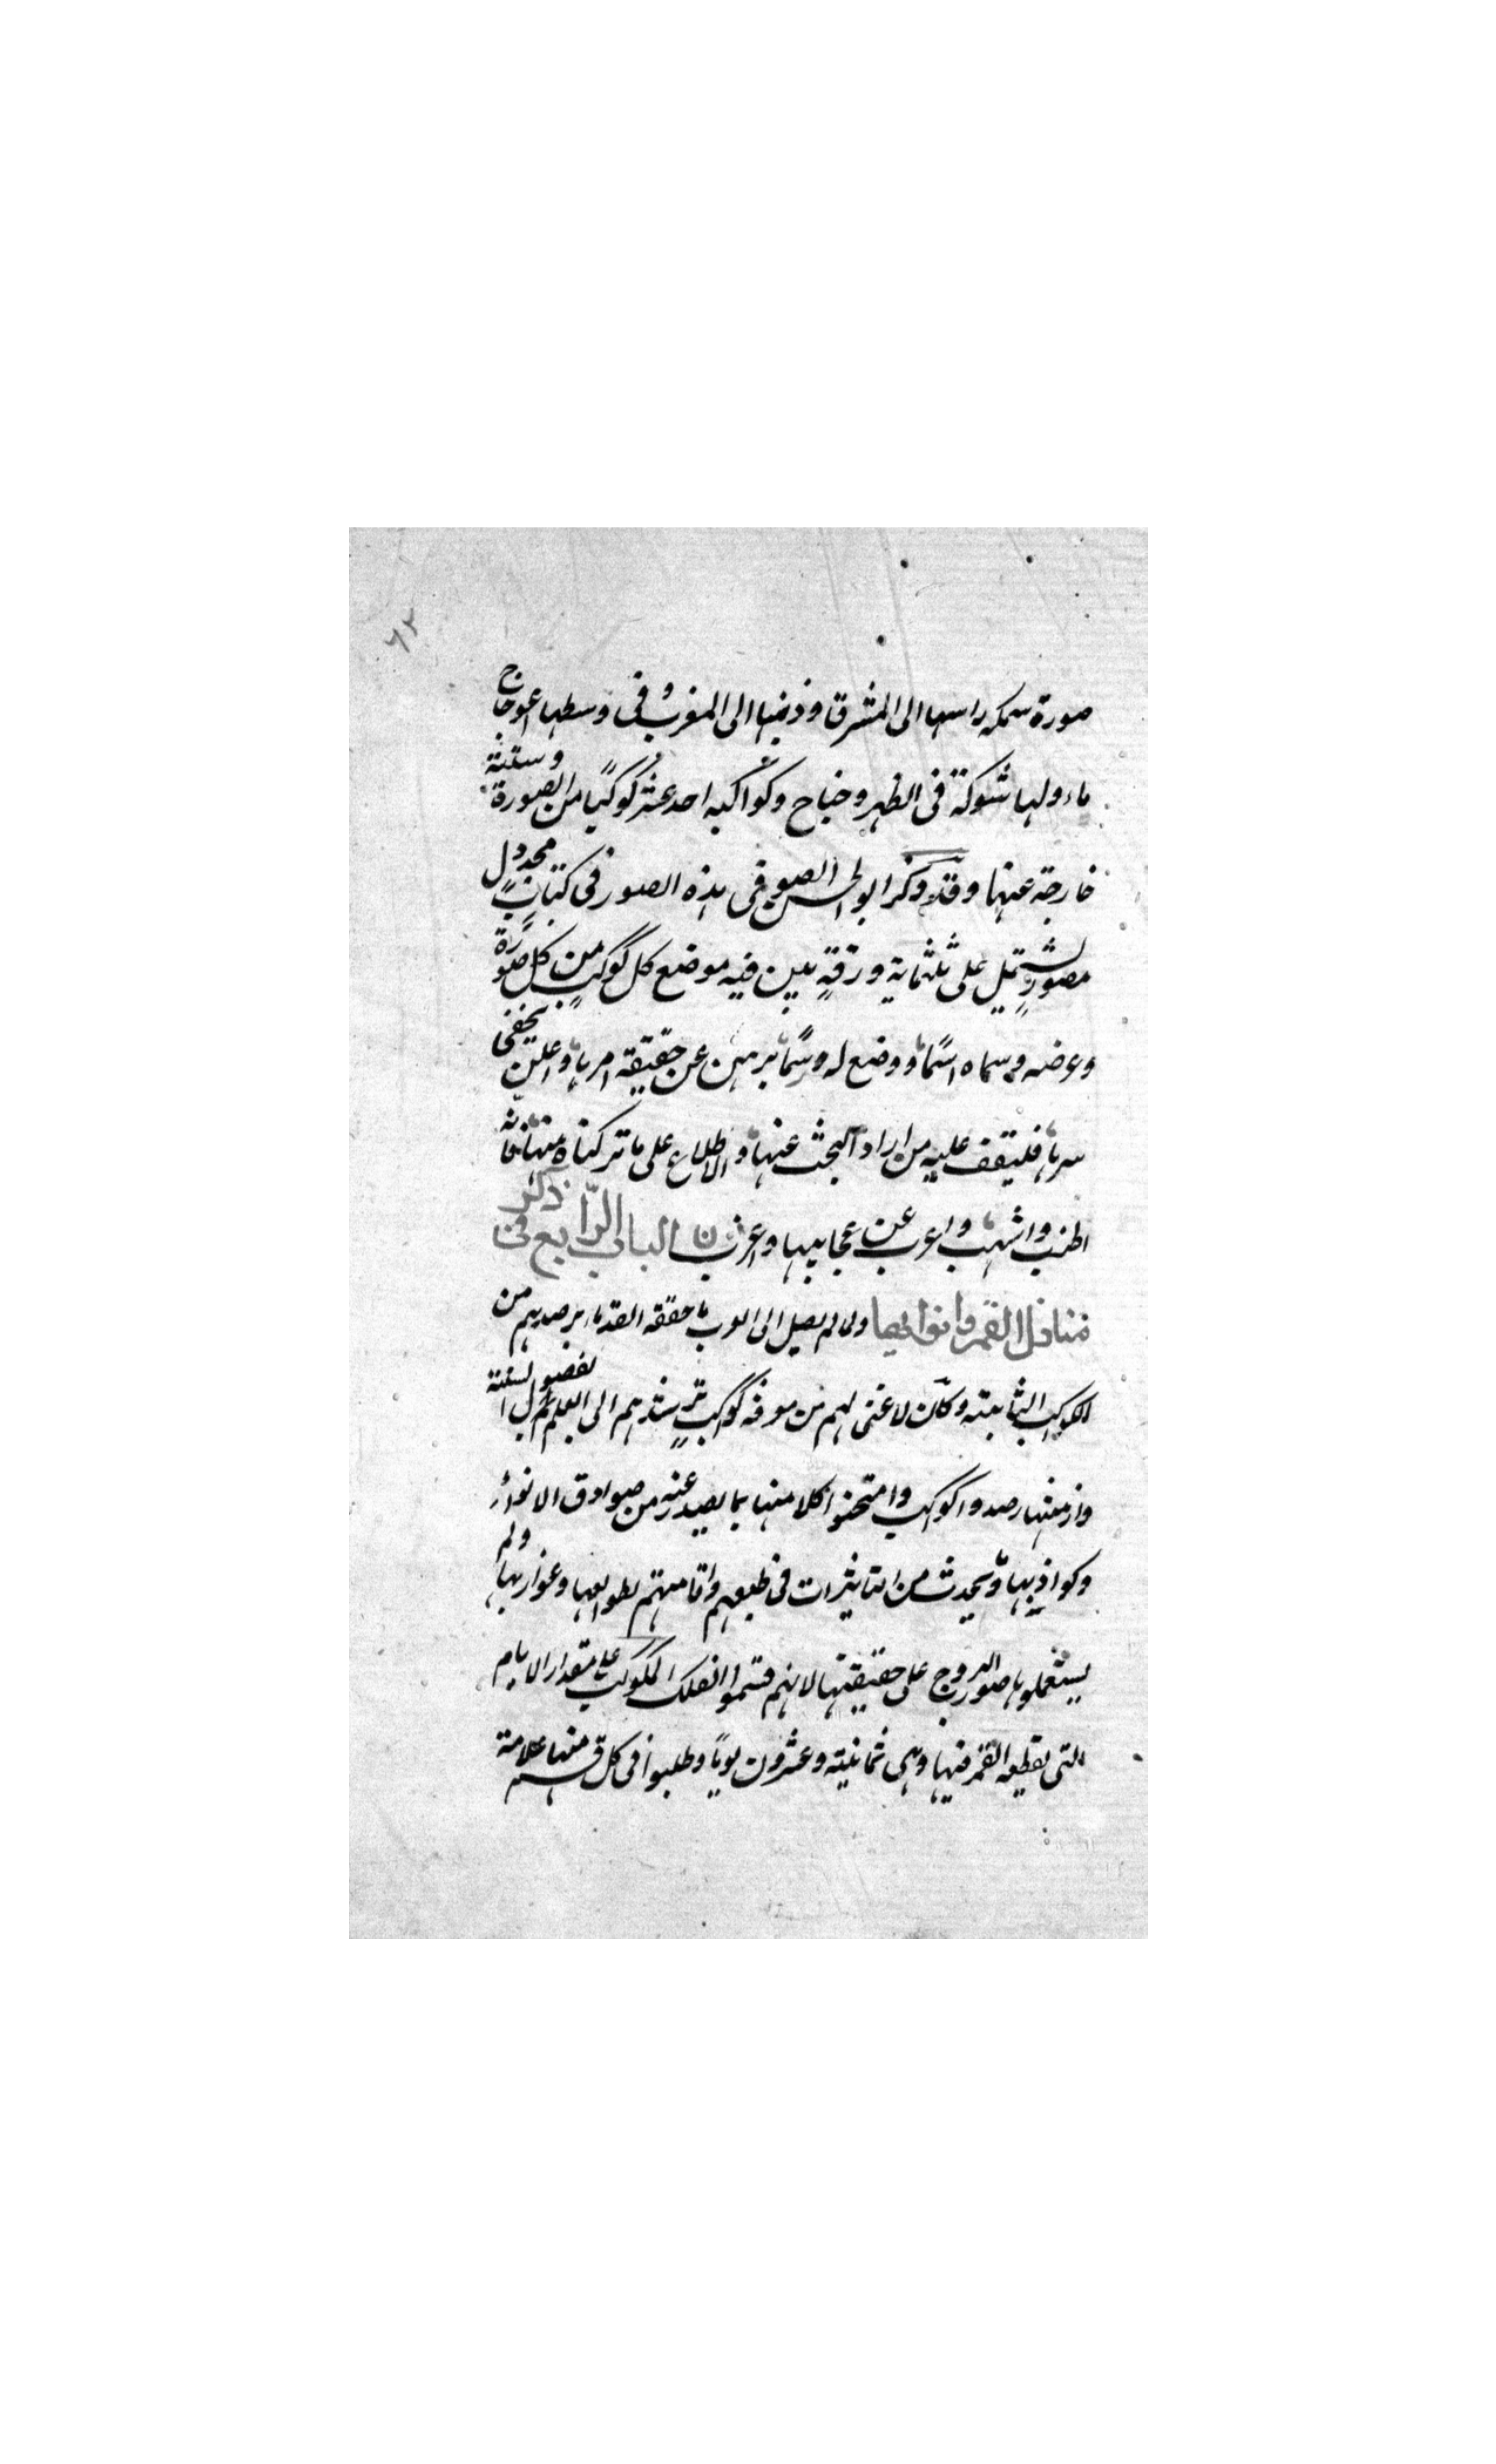 ٦٢
صورة سمكه راسها الى المشرق وذنبها الى المغرب وفى وسطها اعوجاج
ماء ولها شوكة فى الظهر وجناح وكواكبه احد عشر كوكبًا من الصورة وستة
خارجة عنها وقد ذكر ابو الحسن الصوفى هذه الصور فى كتاب مجدول
مصور يشتمل على ثلثماية ورقة بين فيه موضع كل كوكب من كل صورة
وعرضه وسماه اسمًا ووضع له رسمًا برهن عن حقيقة امرها واعلن بخفى
سرها فليقف عليه من اراد البحث عنها والاطلاع على ما تركناه منها فانه
اطنب واشهب واعرب عن عجايبها واغرب الباب الرابع فى ذكر
منازل القمر وانوائها ولما لم يصل الى العرب ما حققه القدماء برصدهم من
الكواكب الثابتة وكان لا غنى لهم من معرفة كواكب ترشدهم الى العلم بفصول السنة
وازمنتها رصدوا كواكب وامتحنوا كلا منها بما يصدر عنه من صوادق الانواء
وكواذبها وما يحدث من التاثيرات فى ظعنهم واقامتهم لطوالعها وغواربها ولم
يستعملوا صور البروج على حقيقتها لانهم قسموا الفلك المكوكب على مقدار الايام
التى يقطعه القمر فيها وهى ثمانية وعشرون يومًا وطلبوا فى كل قسم منها علامة